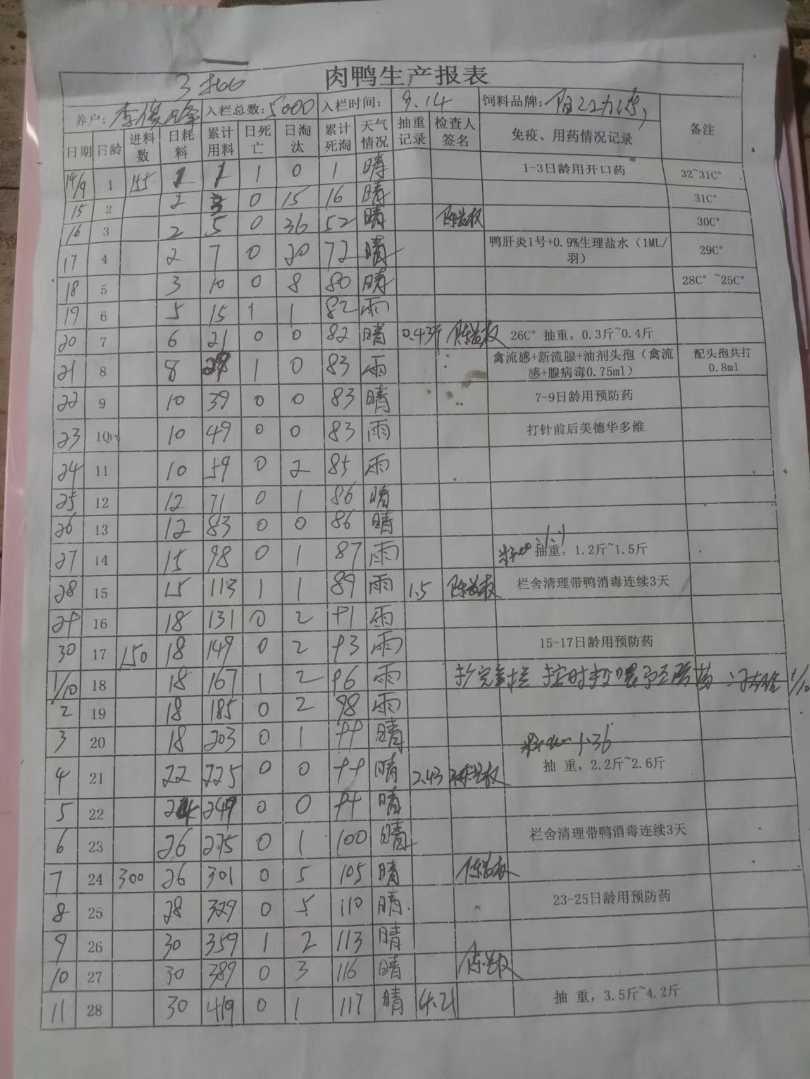 肉鸭生产报表
养户: 李俊峰 入栏总数: 5000 入栏时间: 9.14 饲料品牌:
日期 日龄 进料数 日耗料 累计用料 日死亡 日淘汰 累计死淘 天气情况 抽重记录 检查人签名 免疫、用药情况记录 备注
14/9 1 155 1 1 1 0 1 晴 1-3日龄用开口药 32~31C°
15 2 2 3 0 15 16 晴 31C°
16 3 2 5 0 36 52 晴 30C°
17 4 2 7 0 20 72 晴 鸭肝炎1号+0.9%生理盐水(1ML/羽) 29C°
18 5 3 10 0 8 80 晴 28C° ~25C°
19 6 5 15 1 1 82 雨
20 7 6 21 0 0 82 晴 0.43斤 26C° 抽重,0.3斤~0.4斤
21 8 8 29 1 0 83 雨 禽流感+新流腺+油剂头孢(禽流感+腺病毒0.75ml) 配头孢共打0.8ml
22 9 10 39 0 0 83 晴 7-9日龄用预防药
23 10 10 49 0 0 83 雨 打针前后美德华多维
24 11 10 59 0 2 85 雨
25 12 12 71 0 1 86 晴
26 13 12 83 0 0 86 晴
27 14 15 98 0 1 87 雨 抽重,1.2斤~1.5斤
28 15 15 113 1 1 89 雨 1.5 栏舍清理带鸭消毒连续3天
29 16 18 131 0 2 91 雨
30 17 150 18 149 0 2 93 雨 15-17日龄用预防药
1/10 18 18 167 1 2 96 雨 1/10
2 19 18 185 0 2 98 雨
3 20 18 203 0 1 99 晴
4 21 22 225 0 0 99 晴 2.43 1.36 抽 重,2.2斤~2.6斤
5 22 24 249 0 0 99 晴
6 23 26 275 0 1 100 晴 栏舍清理带鸭消毒连续3天
7 24 300 26 301 0 5 105 晴
8 25 28 329 0 5 110 晴 23-25日龄用预防药
9 26 30 359 1 2 113 晴
10 27 30 389 0 3 116 晴
11 28 30 419 0 1 117 晴 4.21 抽 重,3.5斤~4.2斤